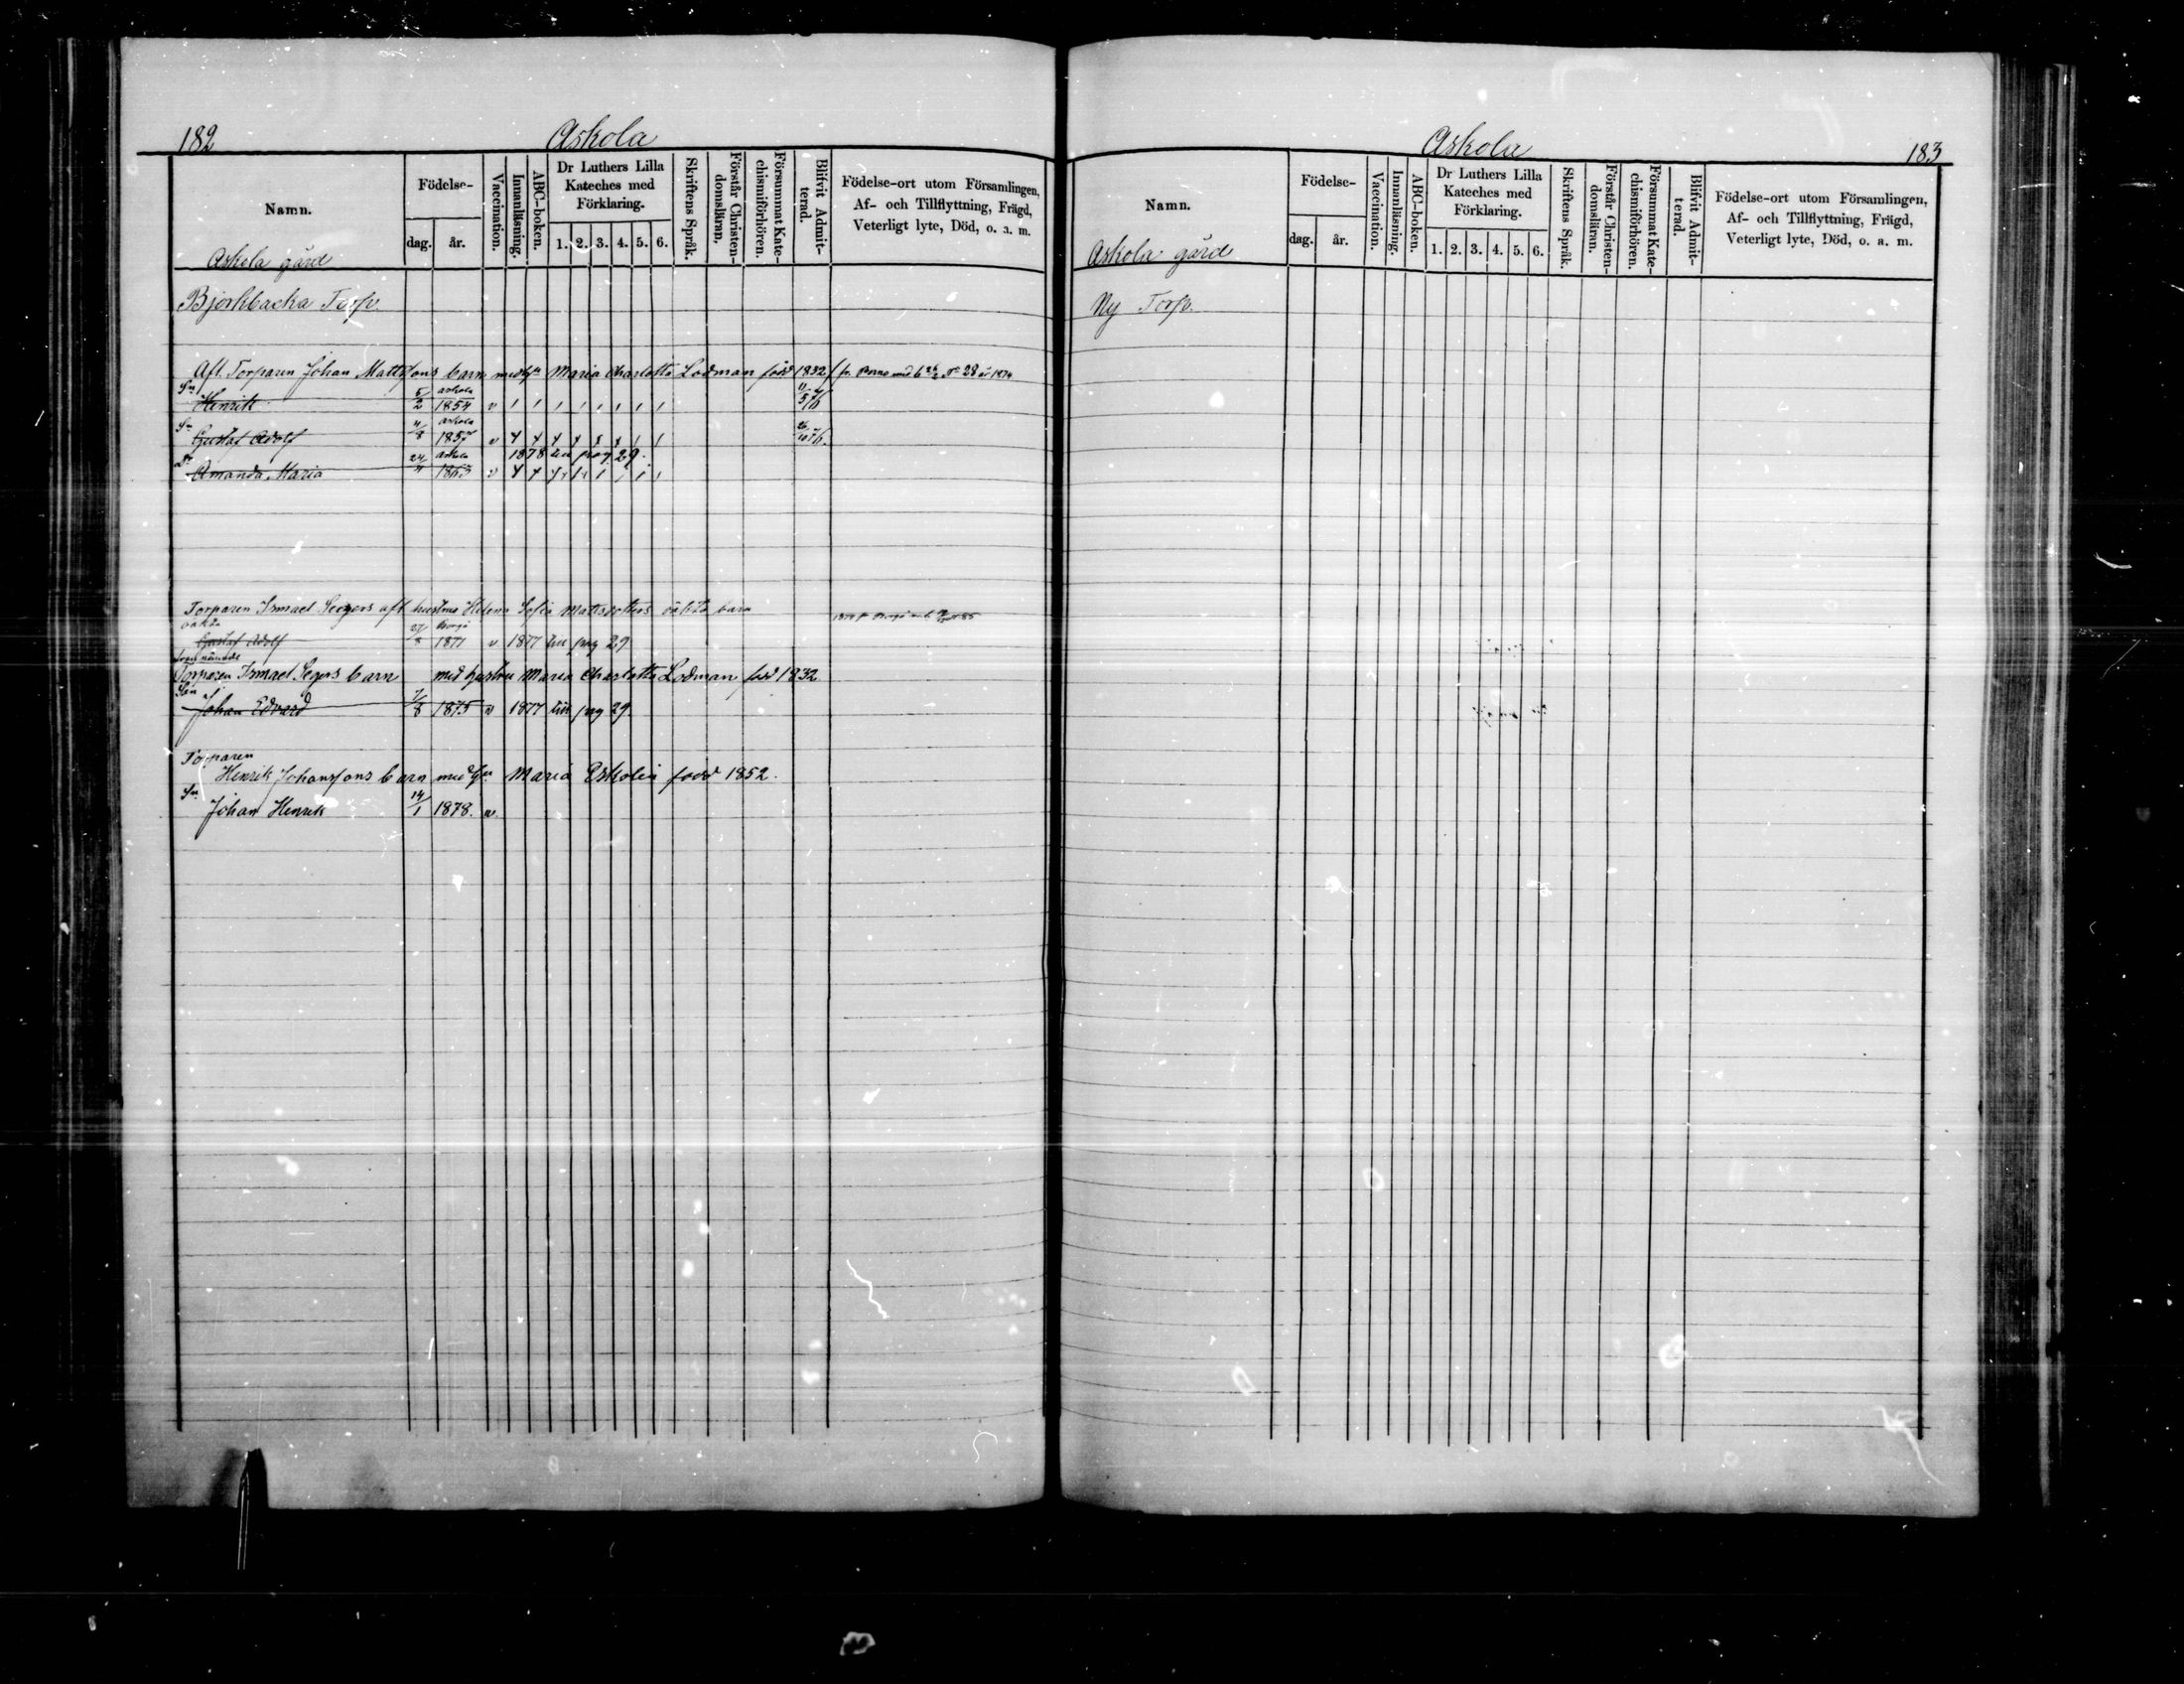 182 Askola
Namn. Födelse- dag. år. Vaccination. Innanläsning. ABC-boken. Dr Luthers Lilla Kateches med Förklaring. 1. 2. 3. 4. 5. 6. Skriftens Språk. Förstår Christendomsläran, Försummat Katechismiförhören. Blifvit Admitterad. Födelse-ort utom Församlingen, Af- och Tillflyttning, Frägd, Veterligt lyte, Död, o. a. m.
Askola gård
Bjorkbacka Torp.
Afl. Torparen Johan Mattssons barn med Maria Charlotta Lodman född 1832
Sn Henrik 5/2 Askola 1854 v
Sn Gustaf Adolf 11/8 Askola 1857 v
1878 till pag 29.
Dr Amanda Maria 24/11 Askola 1863 v
Torparen Ismael Segers afl. hustru Helena Sofia Mattsdotters oäkta barn
oäkta Gustaf Adolf 27/8 Borgå 1871 v 1877 till pag 29
Torparen Ismael Segers barn med hustru Maria Charlotta Lodman född 1832
Son af Johan Edvard 7/8 1875 v 1877 till pag 29.
Torparen
Henrik Johanssons barn med Maria Eskolin född 1852.
Sn Johan Henrik 14/1 1878. v.
Askola 183
Namn. Födelse- dag. år. Vaccination. Innanläsning. ABC-boken. Dr Luthers Lilla Kateches med Förklaring. 1. 2. 3. 4. 5. 6. Skriftens Språk. Förstår Christendomsläran. Försummat Katechismiförhören. Blifvit Admitterad. Födelse-ort utom Församlingen, Af- och Tillflyttning, Frägd, Veterligt lyte, Död, o. a. m.
Askola gård
Ny Torp.